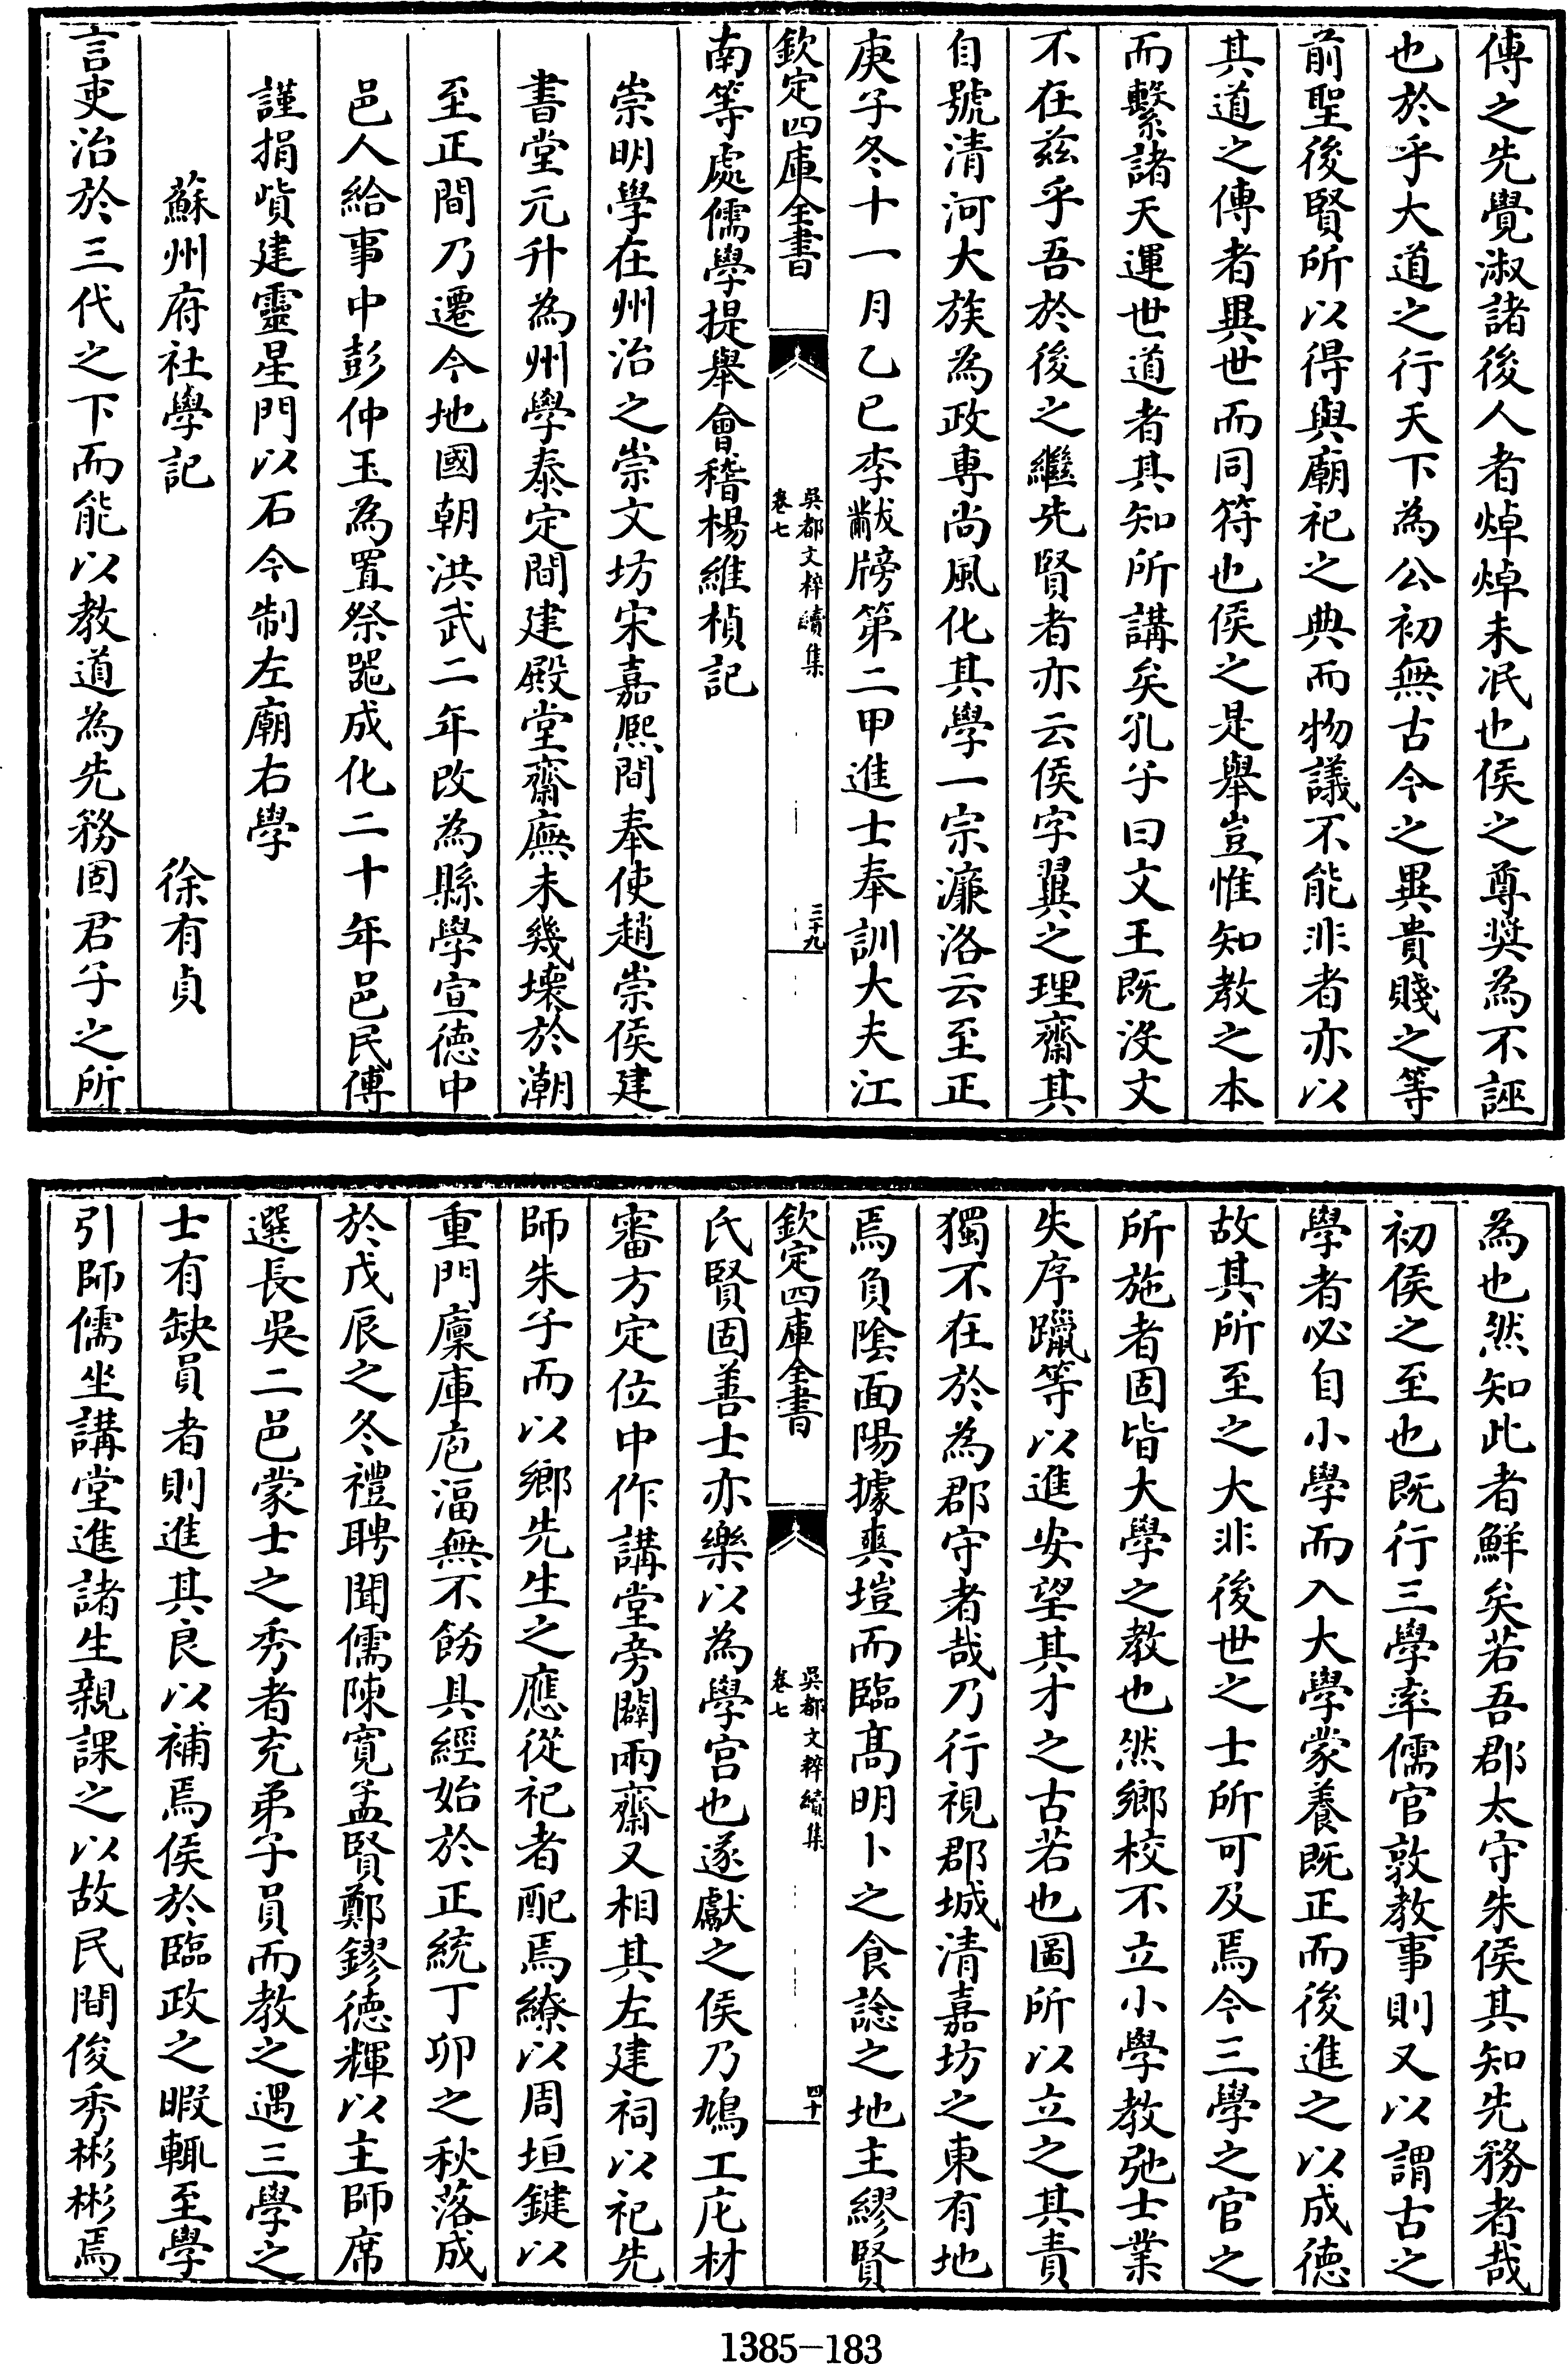 傳之先覺淑諸後人者焯焯未泯也侯之尊奬為不誣
也於乎大道之行天下為公初無古今之異貴賤之等
前聖後賢所以得與廟祀之典而物議不能非者亦以
其道之傳者異世而同符也侯之是舉豈惟知教之本
而繫諸天運世道者其知所講矣孔子曰文王既沒文
不在兹乎吾於後之繼先賢者亦云侯字翼之理齋其
自號清河大族為政專尚風化其學一宗濂洛云至正
庚子冬十一月乙巳李黼牓第二甲進士奉訓大夫江
欽定四庫全書
吳都文粹續集
卷七
三十九
南等處儒學提舉會稽楊維楨記
崇明學在州治之崇文坊宋嘉熙間奉使趙崇侯建
書堂元升為州學泰定間建殿堂齋廡未幾壞於潮
至正間乃遷今地國朝洪武二年改為縣學宣德中
邑人給事中彭仲玉為置祭器成化二十年邑民傅
謹捐貲建靈星門以石今制左廟右學
蘇州府社學記
徐有貞
言吏治於三代之下而能以教道為先務固君子之所
為也然知此者鮮矣若吾郡太守朱侯其知先務者哉
初侯之至也既行三學率儒官敦教事則又以謂古之
學者必自小學而入大學蒙養既正而後進之以成德
故其所至之大非後世之士所可及焉今三學之官之
所施者固皆大學之教也然鄉校不立小學教弛士業
失序躐等以進安望其才之古若也圖所以立之其責
獨不在於為郡守者哉乃行視郡城清嘉坊之東有地
焉負陰面陽據爽塏而臨高明卜之食諗之地主繆賢
欽定四庫全書
吳都文粹續集
卷七
四十
氏賢固善士亦樂以為學宫也遂獻之侯乃鳩工庀材
審方定位中作講堂旁闢兩齋又相其左建祠以祀先
師朱子而以鄉先生之應從祀者配焉繚以周垣鍵以
重門廩庫庖湢無不飭具經始於正統丁卯之秋落成
於戊辰之冬禮聘聞儒陳寬孟賢鄭鏐德輝以主師席
選長吳二邑蒙士之秀者充弟子員而教之遇三學之
士有缺員者則進其良以補焉侯於臨政之暇輒至學
引師儒坐講堂進諸生親課之以故民間俊秀彬彬焉
1385-183